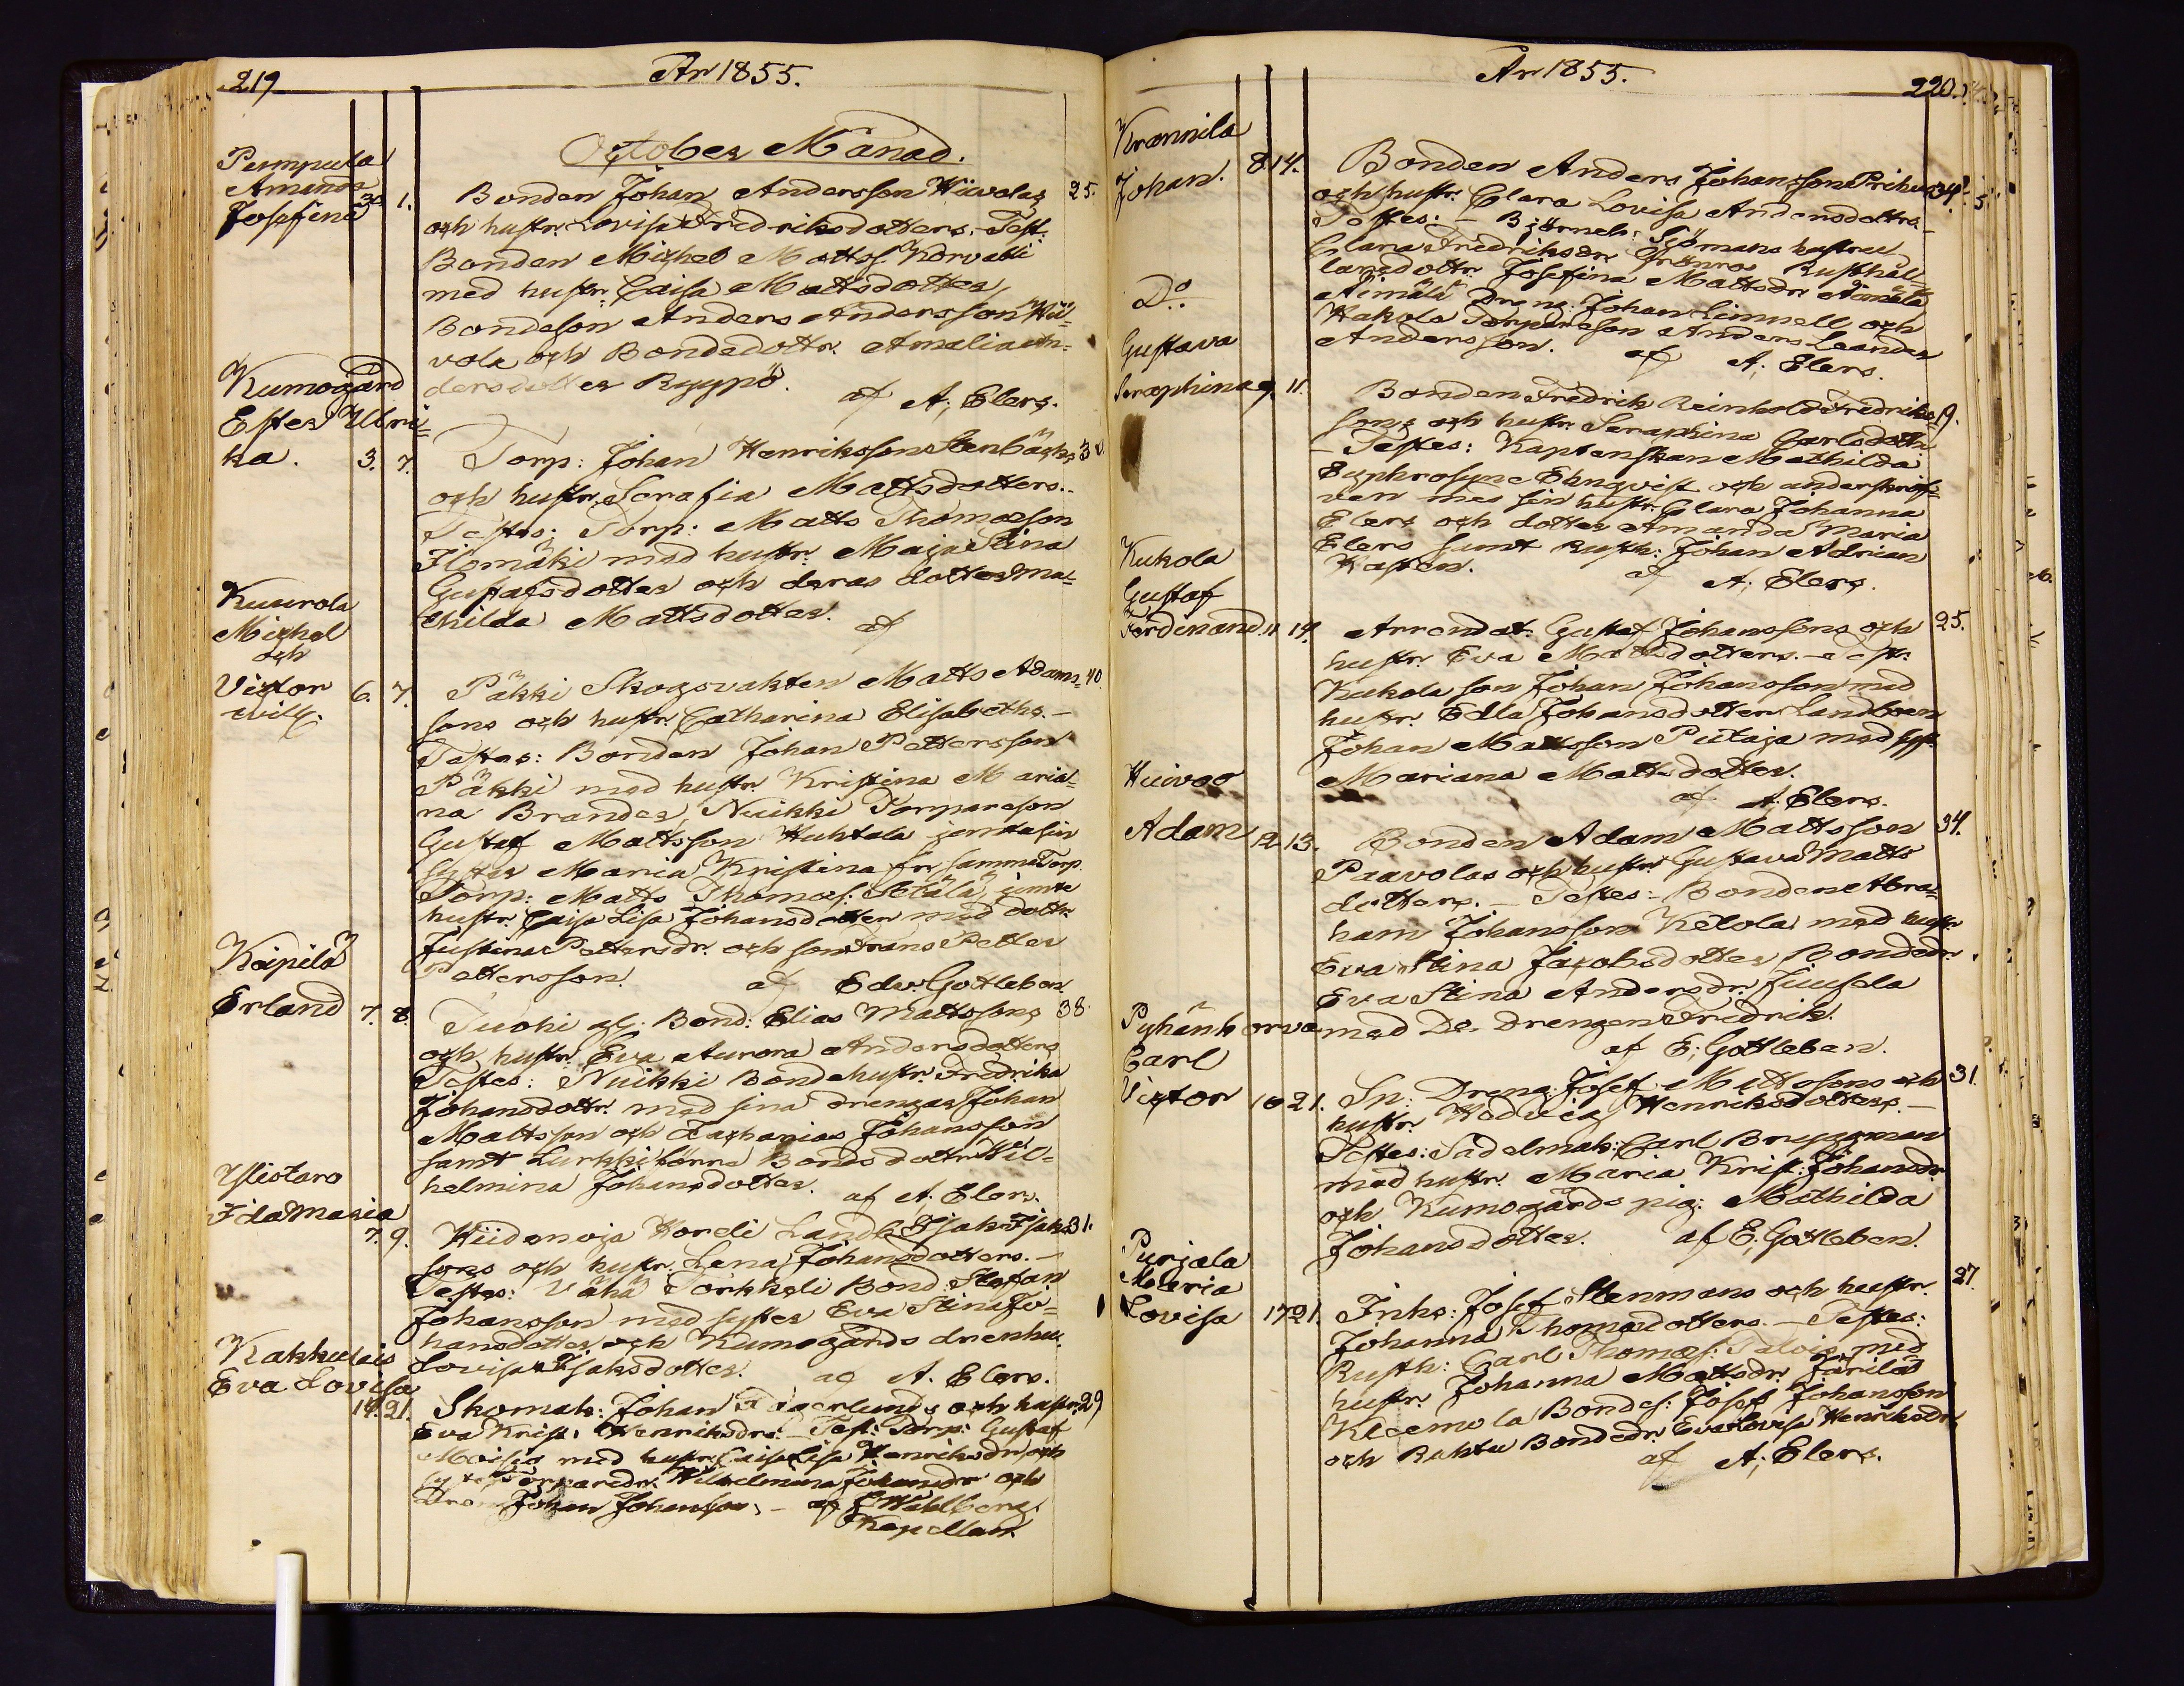 219
År 1855.
October Månad.
Pumpula
Amanda
Josefina 30. 1.
Bonden Johan Andersson Hiivolas 25.
och hustr. Lovisa Fredriksdotters. Test.
Bonden Michel Mattss. Korvatti
med hustr. Caisa Mattsdotter,
Bondeson Anders Andersson Hii-
vola och Bondedottr. Amalia An-
dersdotter Ryypö.
af A. Elers.
Kumogård
Ester Ulri-
ka. 3. 7.
Torp: Johan Henrikssons Stenbäcks
och hustr. Serafia Mattsdotters.
Testes: Torp: Matts Thomasson
Ilomäki med hustr. Maja Stina
Gustafsdotter och deras dotter Ma-
thilda Mattsdotter. af
Kuurola
Michel
och
Victor 6. 7.
Wilh.
Päkki Skogsvakten Matts Adams- 40.
sons och hustr. Catharina Elisabeths.
Testes: Bonden Johan Pettersson
Päkki med hustr. Kristina Maria-
na Brander, Nuikki Torpareson
Gustaf Mattsson Huhtala jemte sin
syster Maria Kristina fr. samma Torp.
Torp: Matts Thomass. Ätälä jemte
hustr. Caisa Lisa Johansdotter med dottr.
Justina Pettersdr. och son Frans Petter
Pettersson. af Edv. Gottleben.
Keipilä
Erland 7. 8.
Tuoki gl: Bond: Elias Mattssons 38.
och hustr. Eva Aurora Andersdotters
Testes: Nuikki Bondehustr. Fredrika
Johansdottr. med sina drengar Johan
Mattsson och Zacharias Johansson
samt Lurkki förra Bonds dottr. Wil-
helmina Johansdotter. af A. Elers.
Ylistaro
Ida Maria
7. 9.
Hiidenoja Hordi Landb. Isak Isaks- 31.
sons och hustr. Lena Johansdotters.
Testes: Vähä Torkkeli Bond: Stefan
Johansson med syster Eva Stina Jo-
hansdotter och Kumogårds
Lovisa Isaksdotter. af A. Elers.
Kakkulais
Eva Lovisa
14. 21.
Skomak: Johan och hustr. 29
Eva Krist. Henriksdrs. Test: Torp: Gustaf
Moisio med hustr. Caisa Lisa Henriksdr. och
Torparedr. Wilhelmina Johansdr. och
Johan Johansson. af Wahlberg.
Kapellan.
År 1855.
220.
Krannila
Johan. 8. 14.
Bonden Anders Johansson Prihas 34. 5.
och hustr. Clara Lovisa Andersdotters.
Testes: Björneb. Sjömans hustru
Clara Fredriksdr. Grönros Rusthål-
laredottr. Josefina Mattsdr. Äimälä
Äimälä Dreng. Johan Limnell och
Hakola Torpareson Anders Leander
Andersson. af A. Elers.
Do.
Gustava
Seraphina 9. 11.
Bonden Fredrik Reinhold Fredriks-
sons och hustr. Seraphina Carlsdottr.
Testes: Kaptenskan Mathilda
Euphrosyne Ehnqvist och underskrif-
ven med sin hustr. Clara Johanna
Elers och dotter Amanda Maria
Elers samt Rusth: Johan Adrian
Kasten. af A. Elers.
Kukola
Gustaf
Ferdinand. 11. 14.
Arrendat. Gustaf Johanssons och 25.
hustr. Eva Mattsdotters. Test:
Kukola son Johan Johansson med
hustr. Edla Johansdotter Landboen
Johan Mattsson Peltaja med hustr.
Mariana Mattsdotter.
af A. Elers.
Huivoo
Adam 12. 13.
Bonden Adam Mattsson 34.
Paavolas och hustr. Gustava Matts
dotters. Testes: Bonden Abra-
ham Johansson Ketola med hustr.
Eva Stina Jacobsdotter, Bondedr.
Eva Stina Andersdr. Juusela
med Do. Drengen Fredrik.
af E. Gottleben.
Pyhänkorva
Carl
Victor 10 21.
Sn. Dreng: Josef Mattssons och 31.
hustr. Hedvig Henriksdotters.
Testes: Sadelmak: Carl Bryggman
med hustr. Maria Krist: Johansdr.
och Kumogårds pig: Mathilda
Johansdotter. af E. Gottleben.
Purjala
Maria
Lovisa 17 21.
Inhs: Josef Stenmans och hustr. 27.
Johanna Thomasdotters. Testes:
Rusth: Carl Thomass: Talois med
hustr. Johanna Mattsdr. Järilä
Kleemola Bondes: Josef Johansson
och Rahtu Bondedr. Eva Lovisa Henriksdr.
af A. Elers.